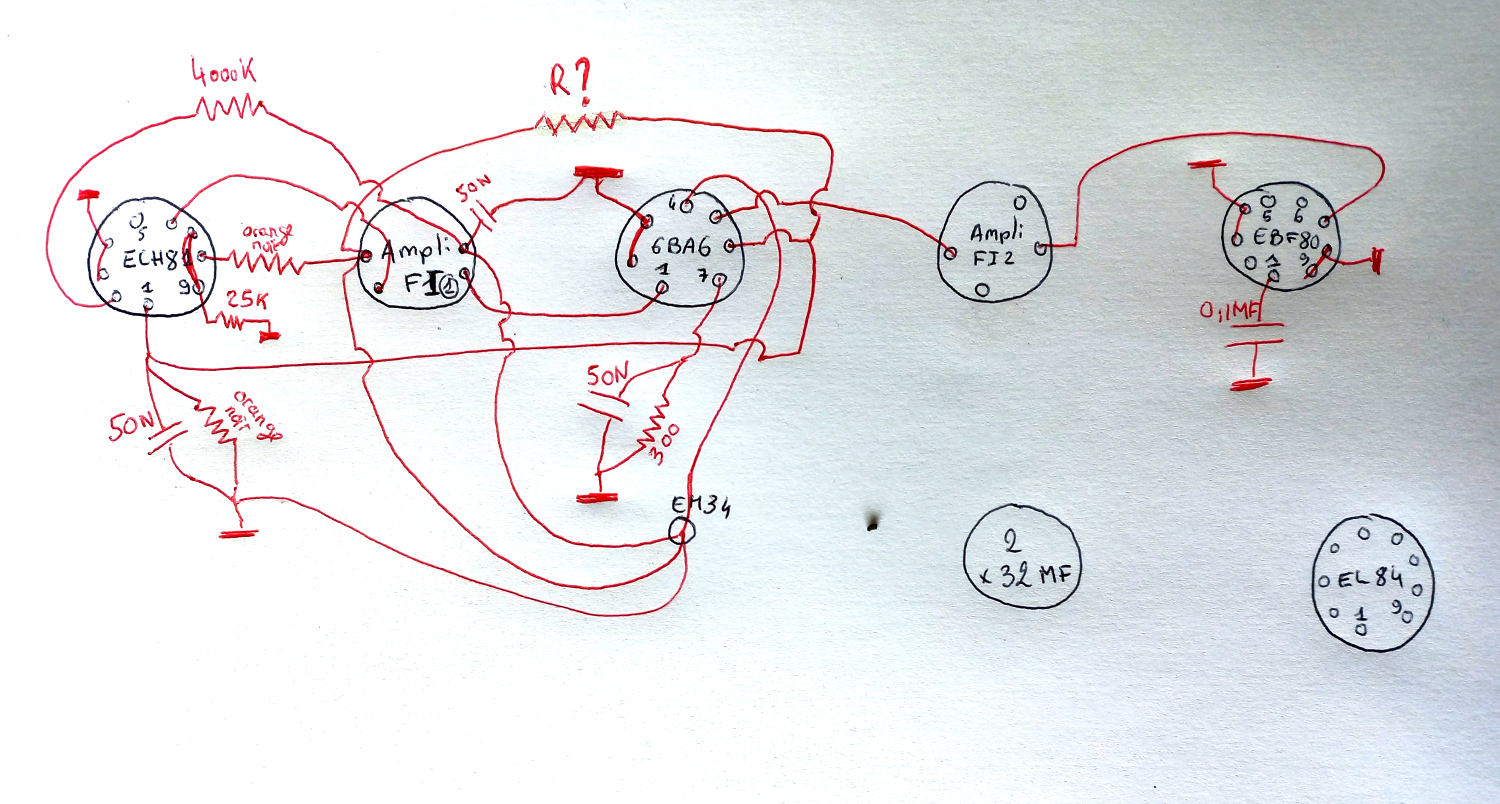 4000K
R?
50N
5
ECH81
1
9
orange
noir
25K
Ampli
FI 1
4
6BA6
1
7
Ampli
FI2
5
6
EBF80
1
9
0,1MF
50N
orange
noir
orange
50N
300
EM34
2
x 32 MF
EL84
1
9